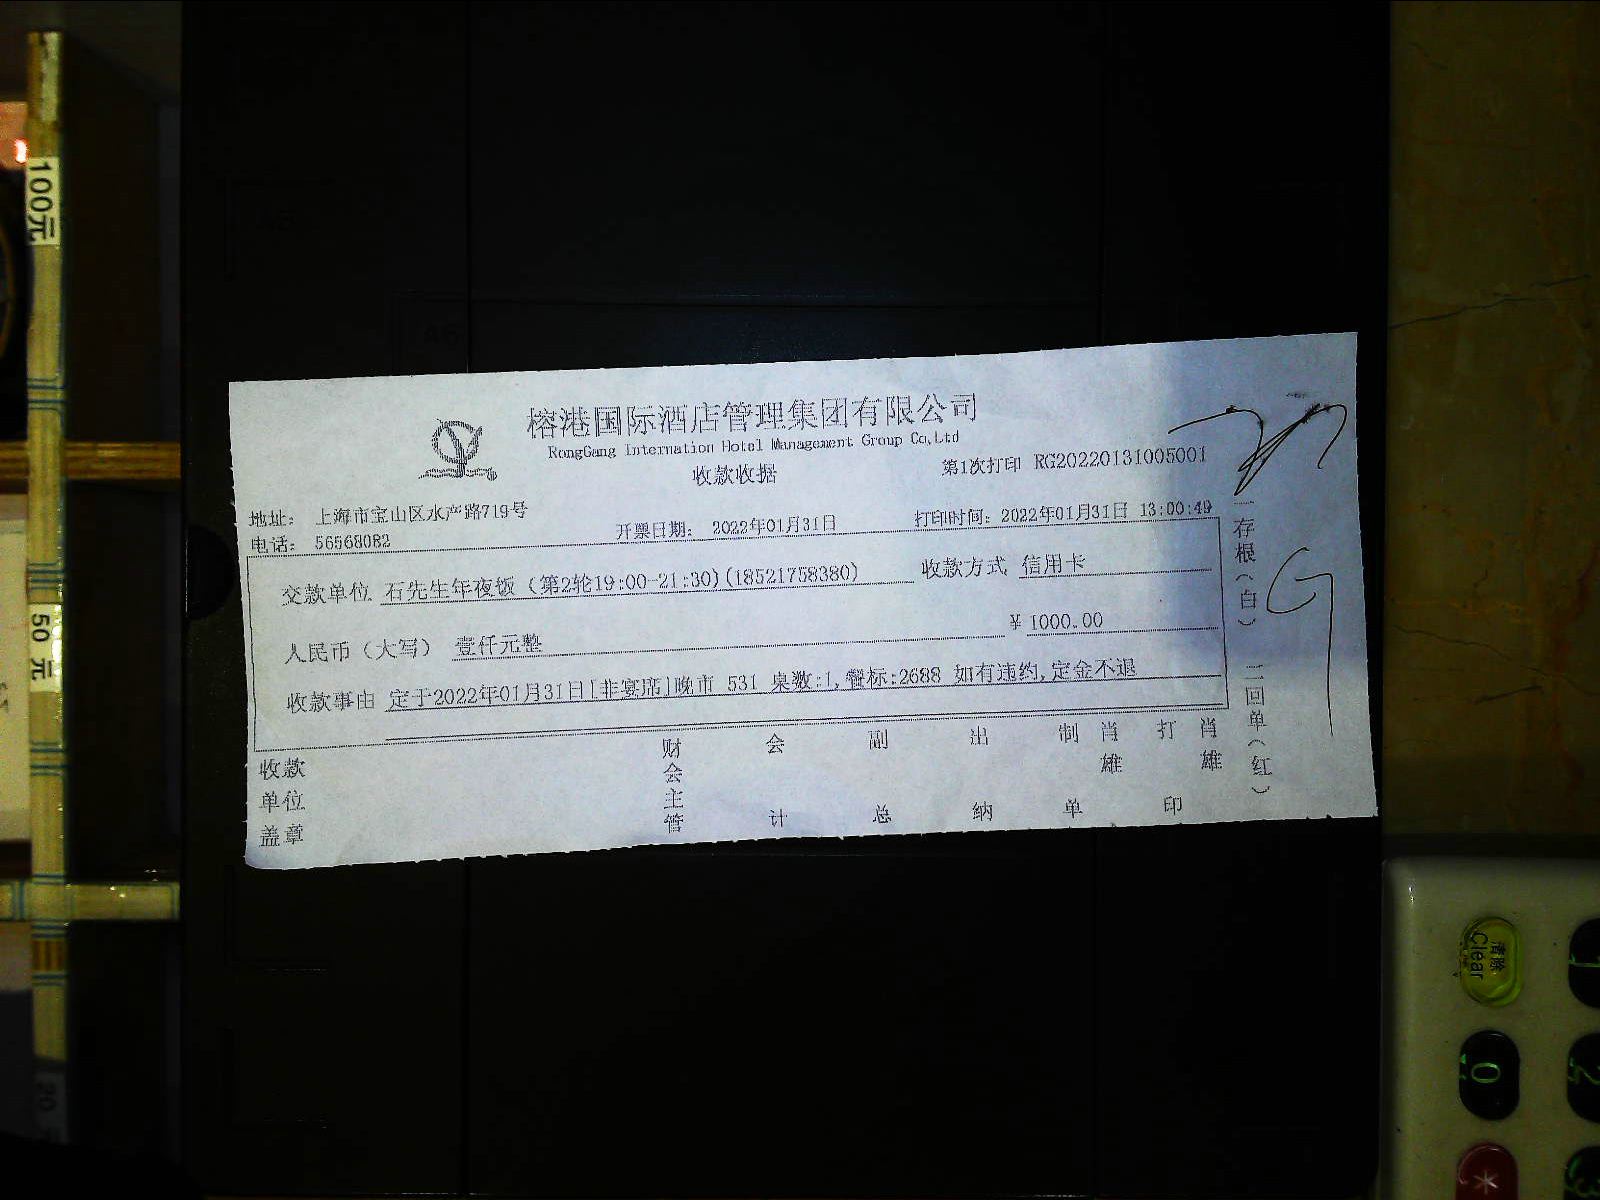 榕港国际酒店管理集团有限公司
RongGang Internation Hotel Management Group Co,Ltd
收款收据
第1次打印 RG20220131005001
地址： 上海市宝山区水产路719号
电话： 56568082
开票日期： 2022年01月31日
打印时间：2022年01月31日 13:00:49
交款单位 石先生年夜饭（第2轮19:00-21:30)(18521758380)
收款方式 信用卡
人民币（大写） 壹仟元整
¥ 1000.00
收款事由 定于2022年01月31日[非宴席]晚市 531 桌数:1,餐标:2688 如有违约,定金不退
收款单位盖章
财会主管
会计
副总
出纳
制单
肖雄
打印
肖雄
一存根（白） 二回单（红）
100元
50元
20
清除
Clear
0
2
3
*